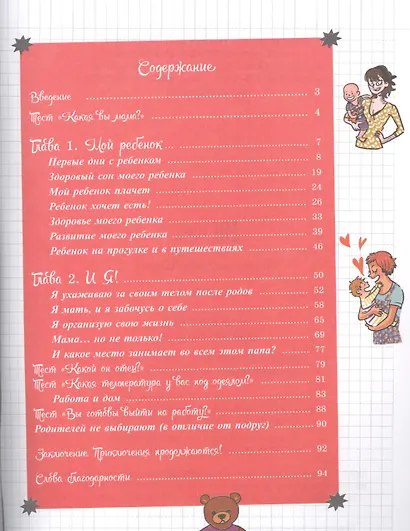 Содержание
Введение ........ 3
Тест «Какая вы мама?» ........ 4
Глава 1. Мой ребенок ........ 7
Первые дни с ребенком ........ 8
Здоровый сон моего ребенка ........ 19
Мой ребенок плачет ........ 24
Ребенок хочет есть! ........ 26
Здоровье моего ребенка ........ 33
Развитие моего ребенка ........ 39
Ребенок на прогулке и в путешествиях ........ 46
Глава 2. И Я! ........ 50
Я ухаживаю за своим телом после родов ........ 52
Я мать, и я забочусь о себе ........ 58
Я организую свою жизнь ........ 65
Мама... но не только! ........ 69
И какое место занимает во всем этом папа? ........ 77
Тест «Какой он отец?» ........ 79
Тест «Какая температура у вас под одеялом?» ........ 81
Работа и дом ........ 83
Тест «Вы готовы выйти на работу?» ........ 88
Родителей не выбирают (в отличие от подруг) ........ 90
Заключение Приключения продолжаются! ........ 92
Слова благодарности ........ 94